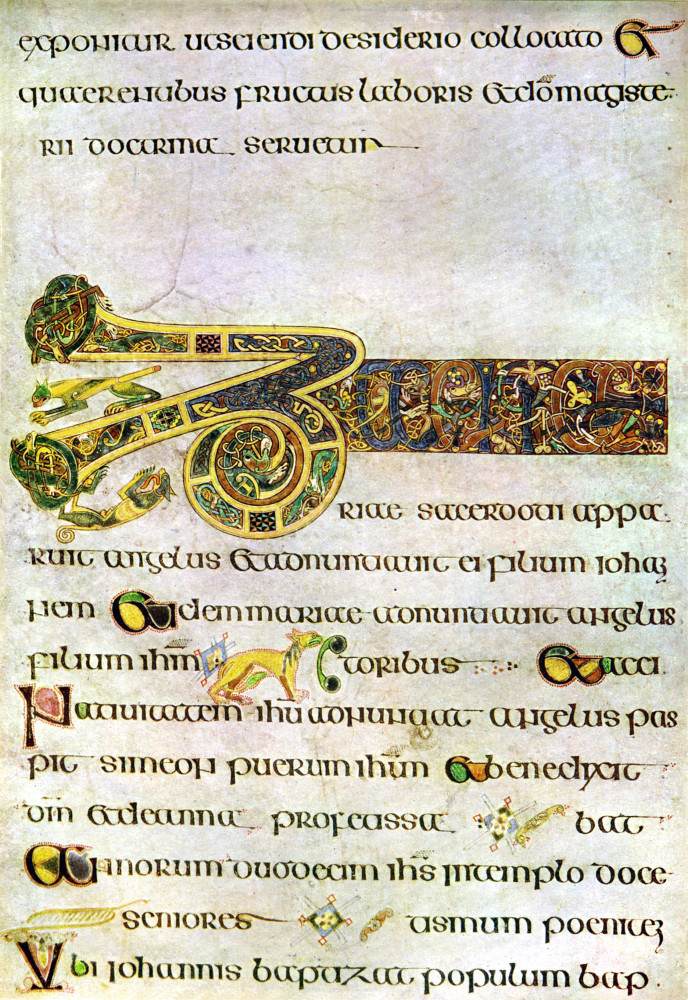 exponitur ut scienti desiderio collocato &
quaerentibus fructus laboris & dō magiste
rii doctrina seruetur
Zacha
riae sacerdoti appa
ruit angelus & adnuntiauit ei filium iohan
nem & idem mariae adnuntiauit angelus
filium ihm̄ toribus & acci
Natiuitatem ihū adnuntiat angelus pas
pit simeon puerum ihm̄ & benedixit
dm̄ & de anna profetissa bat
Annorum duodecim ihs̄ in templo doce
seniores tismum poeniten
Ubi iohannis baptizat populum bap